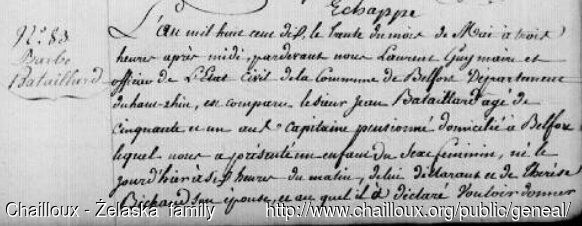 Echappé
N.º 83
Barbe
Bataillard
L'an mil huit cent dix, le trente du mois de Mai à trois
heures après midi, pardevant nous Laurent Guy maire et
officier de L'Etat Civil de la Commune de Belfort Département
du haut-rhin, est comparu le sieur Jean Bataillard agé de
Cinquante et un ans Capitaine pensionné domicilié à Belfort
lequel nous a présenté un enfant du Sexe feminin, né le
jourd'hier à sept heures du matin, de lui déclarant et de Thérèse
Bichand son épouse, et au quel il a déclaré Vouloir donner
Chailloux - Żelaska family http://www.chailloux.org/public/geneal/